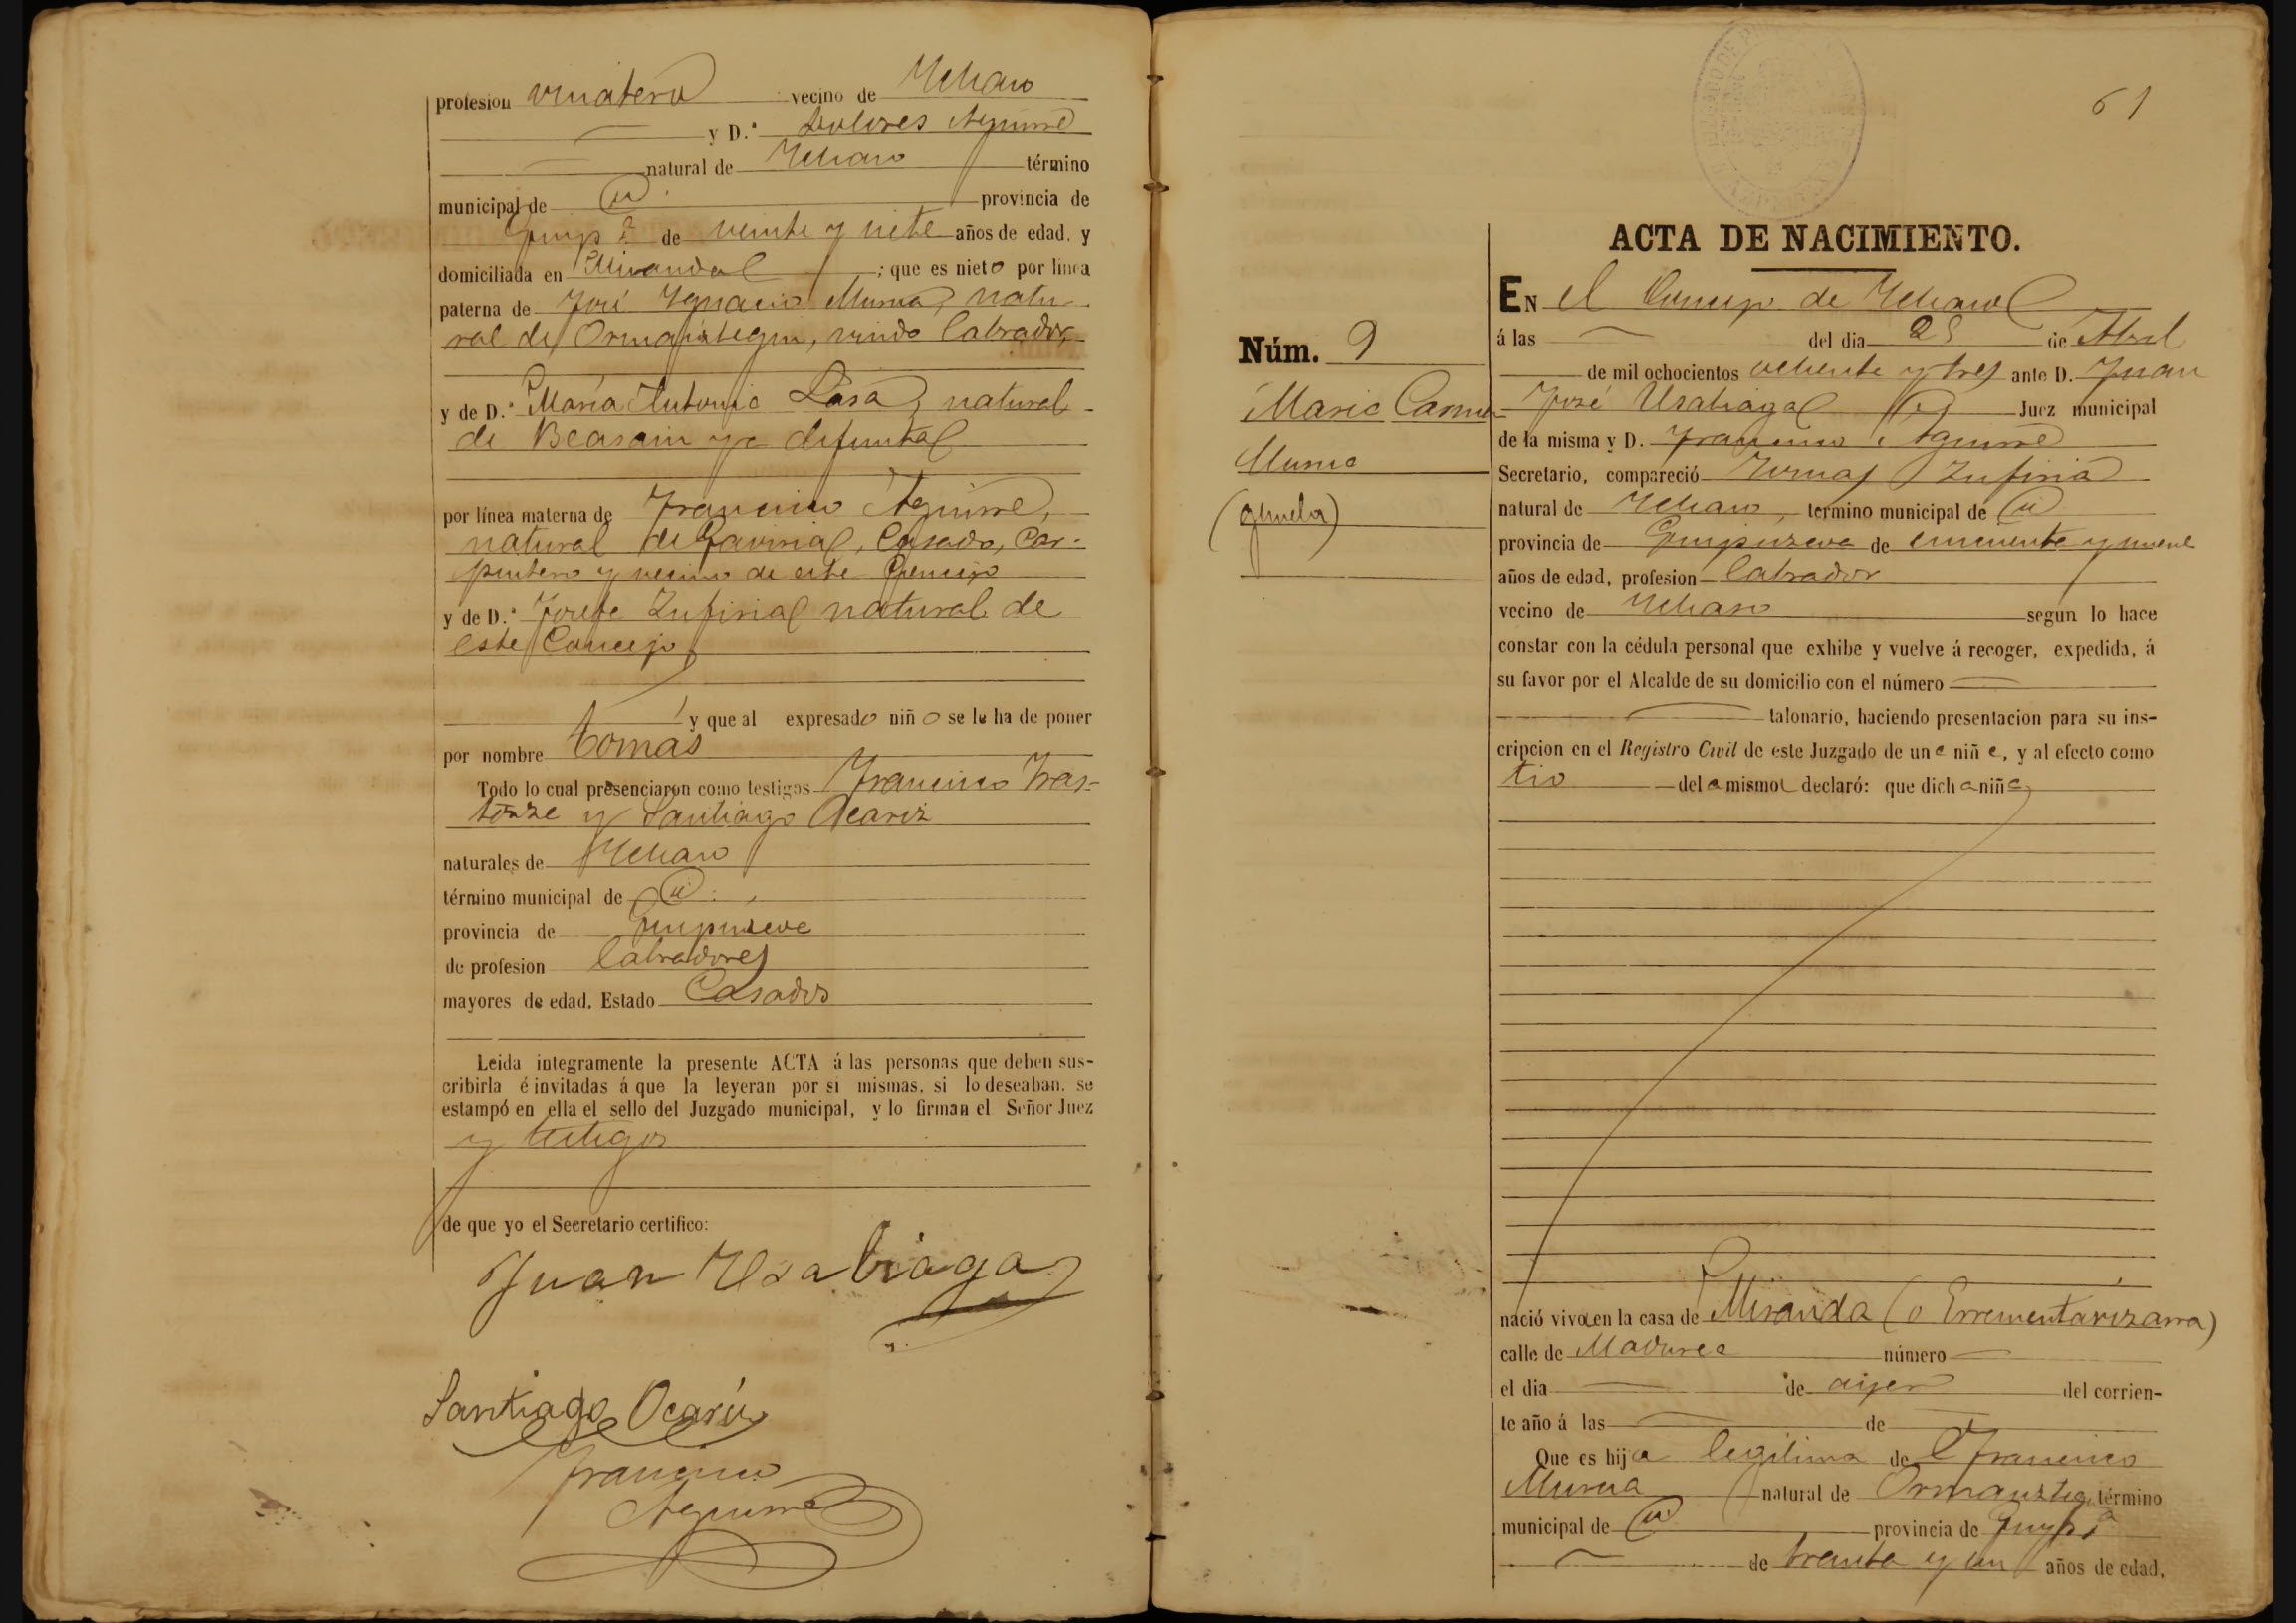 profesion vinatero vecino de Ichaso
y D.ª Dolores Aguirre
natural de Ichaso término
municipal de id. provincia de
Guip.ª de veinte y siete años de edad, y
domiciliada en Miranda ; que es nieto por línea
paterna de José Ignacio Murua, natu-
ral de Ormaiztegui, viudo labrador,
y de D.ª María Antonia Lasa, natural
de Beasain ya difunta
por línea materna de Francisco Aguirre,
natural de Gaviria, Casado, Car-
pintero y vecino de este Concejo
y de D.ª Josefa Zufiria natural de
este Concejo
y que al expresado niño se le ha de poner
por nombre Tomas
Todo lo cual presenciaron como testigos Francisco Iras-
torze y Santiago Ocariz
naturales de Ichaso
término municipal de id.
provincia de Guipuzcoa
de profesion labradores
mayores de edad. Estado Casados
Leida integramente la presente ACTA á las personas que deben sus-
cribirla é invitadas á que la leyeran por si mismas, si lo deseaban, se
estampó en ella el sello del Juzgado municipal, y lo firman el Señor Juez
y testigos
de que yo el Secretario certifico:
Juan Usabiaga
Santiago Ocariz
Francisco
Aguirre
61
ACTA DE NACIMIENTO.
Núm. 9
Maria Carmen
Murua
(gemela)
EN el Concejo de Ichaso
á las del dia 25 de Abril
de mil ochocientos ochenta y tres ante D. Juan
José Usabiaga Juez municipal
de la misma y D. Francisco Aguirre
Secretario, compareció Tomas Zufiria
natural de Ichaso, termino municipal de id
provincia de Guipuzcoa de cincuenta y nueve
años de edad, profesion labrador
vecino de Ichaso segun lo hace
constar con la cédula personal que exhibe y vuelve á recoger, expedida, á
su favor por el Alcalde de su domicilio con el número
talonario, haciendo presentacion para su ins-
cripcion en el Registro Civil de este Juzgado de una niña, y al efecto como
tio de la misma declaró: que dicha niña
nació viva en la casa de Miranda (o Errementarizarra)
calle de número
el dia de ayer del corrien-
te año á las de
Que es hija legitima de Francisco
Murua natural de Ormaiztegui término
municipal de id provincia de Guip.ª
de treinta y un años de edad,